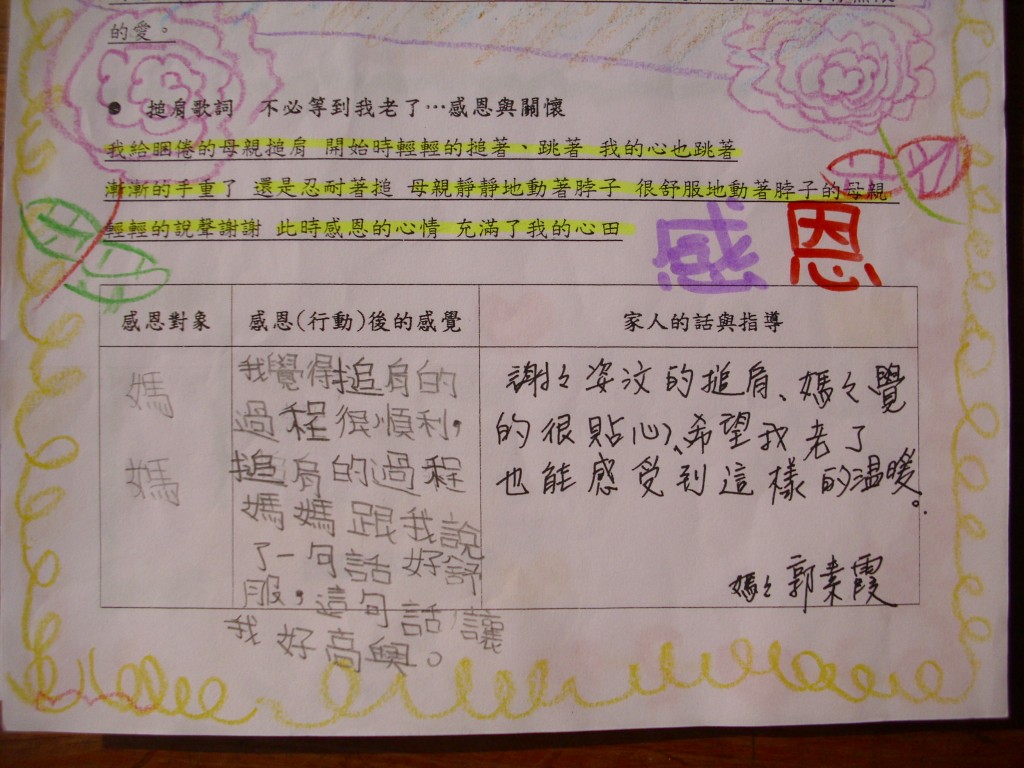 的愛。
● 搥肩歌詞 不必等到我老了…感恩與關懷
我給睏倦的母親搥肩 開始時輕輕的搥著、跳著 我的心也跳著
漸漸的手重了 還是忍耐著搥 母親靜靜地動著脖子 很舒服地動著脖子的母親
輕輕的說聲謝謝 此時感恩的心情 充滿了我的心田
感恩
感恩對象
感恩(行動)後的感覺
家人的話與指導
媽
媽
我覺得搥肩的
過程很順利,
搥肩的過程
媽媽跟我說
了一句話好舒
服,這句話讓
我好高興。
謝々姿汶的搥肩、媽々覺
的很貼心、希望我老了
也能感受到這樣的溫暖。
媽々郭素霞